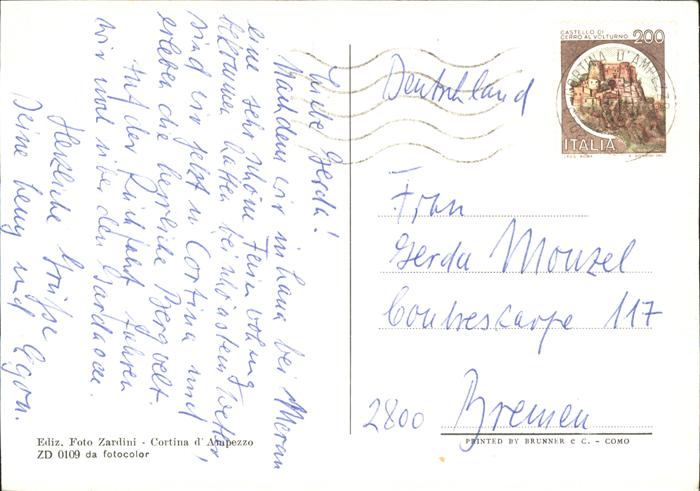 Liebe Gerda!
Nachdem wir in Lana bei Meran
eine sehr schöne Ferienwohng
hatten bei schönstem Wetter,
sind wir jetzt in Cortina und
erleben die herrliche Bergwelt.
Auf der Rückfahrt fahren
wir wohl über den Gardasee.
Herzliche Grüße
Deine und Egon.
Deutschland
CASTELLO DI
CERRO AL VOLTURNO
200
ITALIA
CORTINA D'AMPEZZO
Frau
Gerda Monzel
Contrescarpe 117
2800 Bremen
Ediz. Foto Zardini - Cortina d'Ampezzo
ZD 0109 da fotocolor
PRINTED BY BRUNNER e C. - COMO